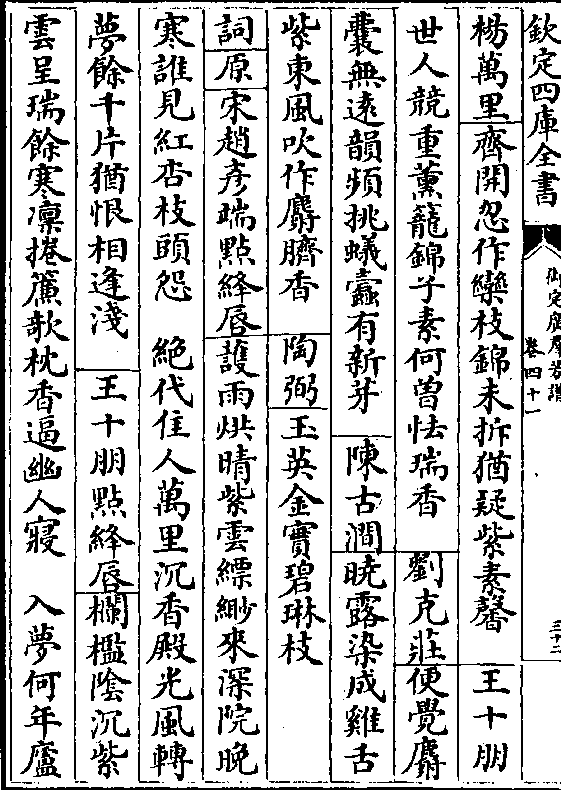 欽定四庫全書
御定廣羣芳譜
卷四十一
三十二
楊萬里齊開忽作欒枝錦未拆猶疑紫素馨 王十朋
世人競重薰籠錦子素何曾怯瑞香 劉克莊便覺麝
囊無遠韻頻挑蟻蠹有新芽 陳古澗曉露染成雞舌
紫東風吹作麝臍香 陶弼玉英金實碧琳枝
詞原宋趙彥端點絳唇護雨烘晴紫雲縹緲來深院晚
寒誰見紅杏枝頭怨 絕代佳人萬里沉香殿光風轉
夢餘千片猶恨相逢淺 王十朋點絳唇欄檻陰沉紫
雲呈瑞餘寒凜捲簾欹枕香逼幽人寢 入夢何年廬